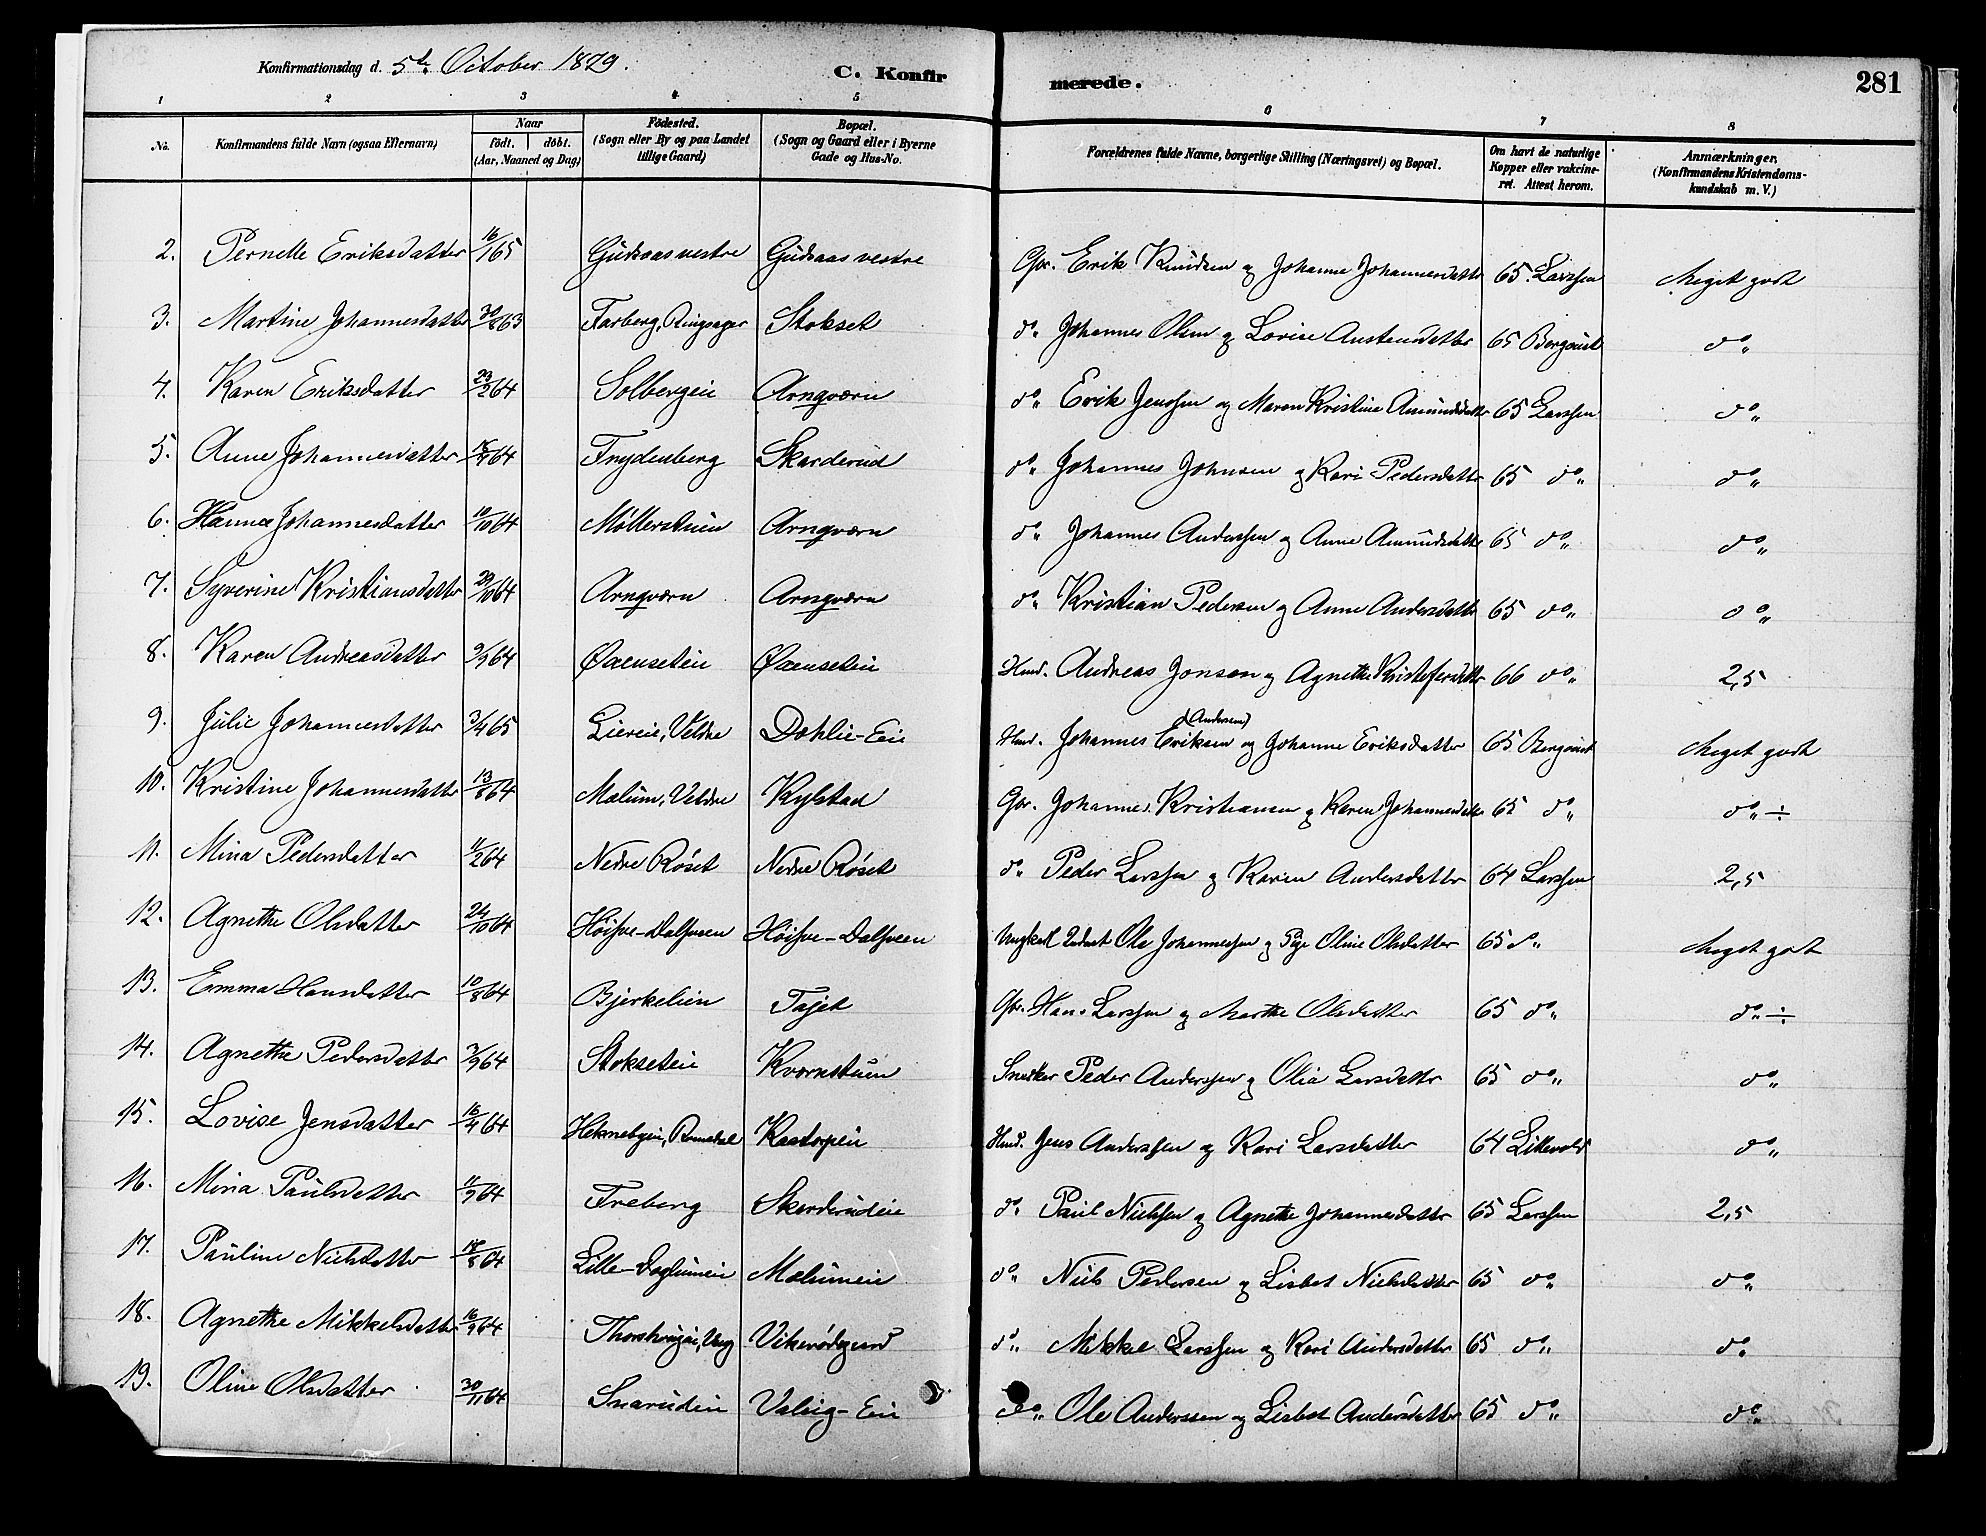 Konfirmationsdag d. 5te October 1879.
C. Konfir merede.
281
1 2 3 4 5 6 7 8
No. Konfirmandens fulde Navn (ogsaa Efternavn) Naar födt. döbt. (Aar, Maaned og Dag) Födested. (Sogn eller By og paa Landet tillige Gaard) Bopæl. (Sogn og Gaard eller i Byerne Gade og Hus-No. Forældrenes fulde Navne, borgerlige Stilling (Næringsvei) og Bopæl. Om havt de naturlige Kopper eller vakcineret. Attest herom. Anmærkninger. (Konfirmandens Kristendomskundskab m. V.)
2. Pernelle Eriksdatter 16/1 65 Gudsaas vestre Gudsaas vestre Gbr. Erik Knudsen og Johanne Johannesdatter 65 Larssen Meget godt
3. Martine Johannesdatter 30/8 63 Farberg, Ringsager Stokset do„ Johannes Olsen og Lovise Austensdatter 65 Bergquist do„
4. Karen Eriksdatter 23/2 64 Solbergeie Arngværn do„ Erik Jenssen og Maren Kristine Amundsdatter 65 Larssen do„
5. Anne Johannesdatter 64 Frydenberg Skarderud do„ Johannes Johnsen og Kari Pedersdatter 65 do„ do„
6. Hanna Johannesdatter 10/10 64 Møllerstuen Arngværn do„ Johannes Anderssen og Anne Amundsdatter 65 do„ do„
7. Syverine Kristiansdatter 29/10 64 Arngværn Arngværn do„ Kristian Pedersen og Anne Andersdatter 65 do„ do„
8. Karen Andreasdatter 9/9 64 Øxenseteie Øxenseteie Hmd. Andreas Jonsen og Agnethe Kristofersdatter 66 do„ 2,5
9. Julie Johannesdatter 3/4 65 Liereie, Veldre Dohlie-Eie Hmd. Johannes Eriksen (Andersen) og Johanne Eriksdatter 65 Bergquist Meget godt
10. Kristine Johannesdatter 13/8 64 Mælum, Veldre Kylstad Gbr. Johannes Kristiansen og Karen Johannesdatter 65 do„ do„ ÷
11. Mina Pedersdatter 11/2 64 Nedre Røset Nedre Røset do„ Peder Larssen og Karen Andersdatter 64 Larssen 2,5
12. Agnethe Olsdatter 24/10 64 Høisve-Dalsveen Høisve-Dalsveen Ungkarl Ole Johannessen og Pige Oline Olsdatter 65 do„ Meget godt
13. Emma Hansdatter 10/8 64 Bjerkelien Tajet Gbr. Hans Larssen og Marthe Olsdatter 65 do„ do„ ÷
14. Agnethe Pedersdatter 3/9 64 Stokseteie Kvernstuen Snedker Peder Anderssen og Olia Larsdatter 65 do„ do„
15. Lovise Jensdatter 16/4 64 Heknebyeie, Romedal Kastorpeie Hmd. Jens Anderssen og Kari Larsdatter 64 do„
16. Mina Paulsdatter 11/9 64 Freberg Skarderudeie do„ Paul Nielssen og Agnethe Johannesdatter 65 Larssen 2,5
17. Pauline Nielsdatter 18/8 64 Lille-Doglumeie Mælumeie do„ Niels Pedersen og Lisbet Nielsdatter 65 do„ do„
18. Agnethe Mikkelsdatter 16/9 64 Vikerødgaard do„ Mikkel Larssen og Kari Andersdatter 65 do„ do„
19. Oline Olsdatter 30/11 64 Snarudeie Valsig-Eie do„ Ole Anderssen og Lisbet Andersdatter 65 do„ do„